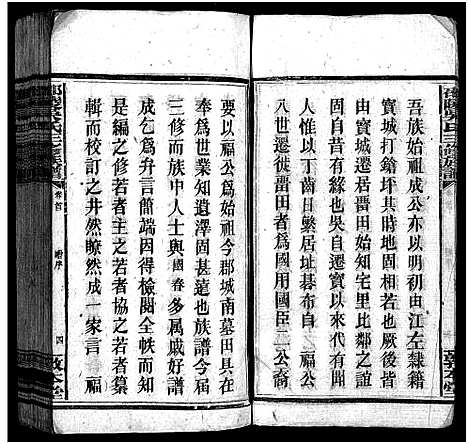 吾族始祖成公亦以明初由江左隸籍
寳城打鎗坪其時地固相若也厥後皆
由寳城遷居雷田始知宅里比鄰之誼
固自昔有緣也吳自遷寳以來代有聞
人惟以丁齒日繁居址碁布自 福公
八世遷徙雷田者爲國用國臣二公裔
要以福公爲始祖今郡城南墓田具在
奉爲世業知遺澤固甚遠也族譜今屆
三修而族中人士與國春多屬戚好譜
成乞爲弁言簡端因得檢閱全帙而知
是編之修若者主之若者協之若者纂
輯而校訂之井然瞭然成一家言 福
吳氏三修族譜
卷首
附序
四
敦本堂